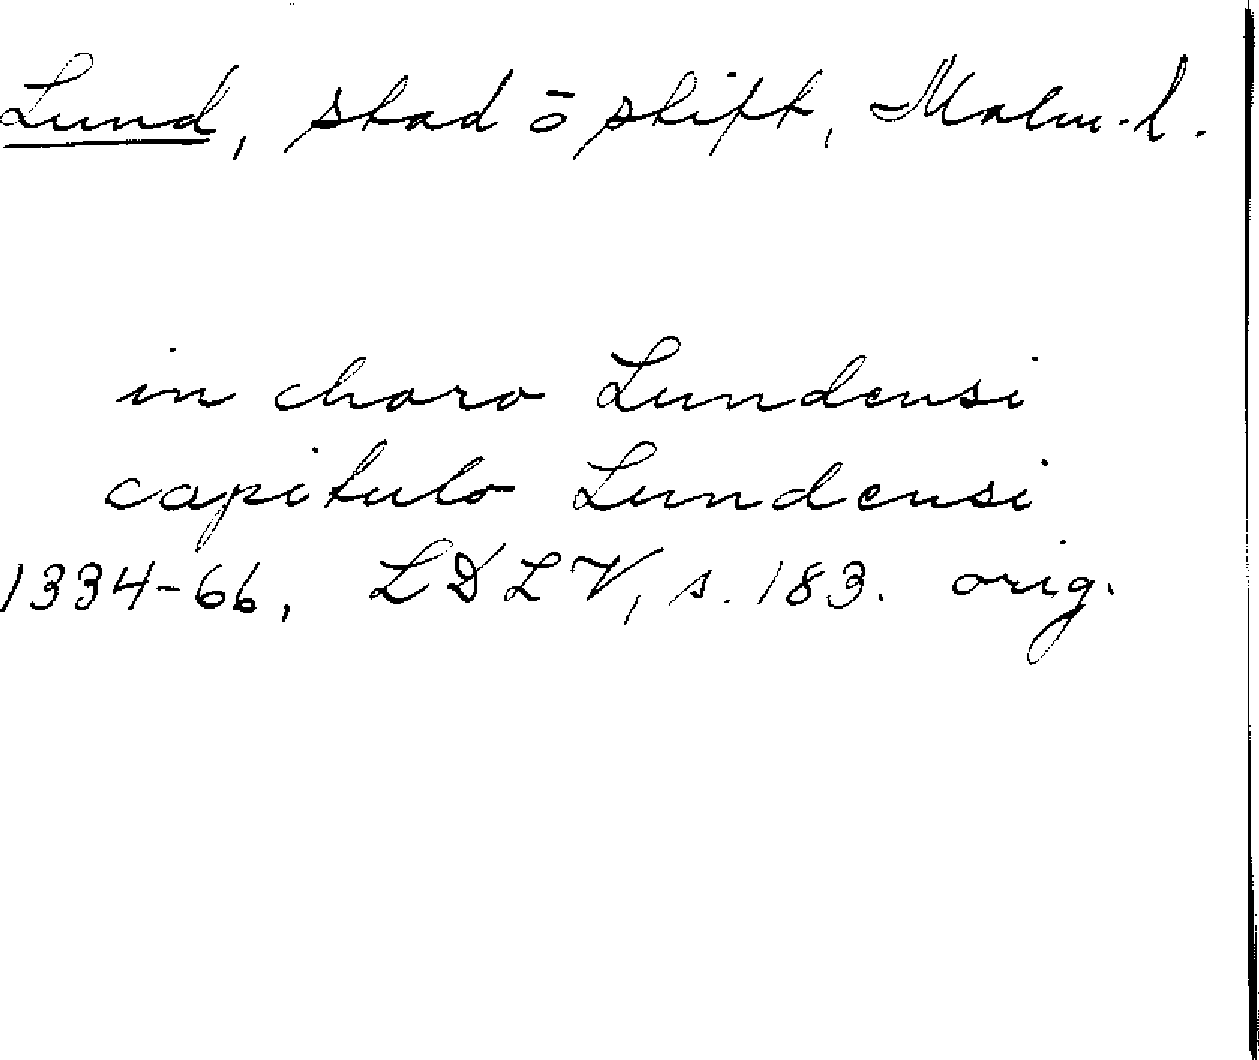 Lund, stad ō stift, Malm.l.
in choro Lundensi
capitulo Lundensi
1334-66, LDLV, s. 183. orig.